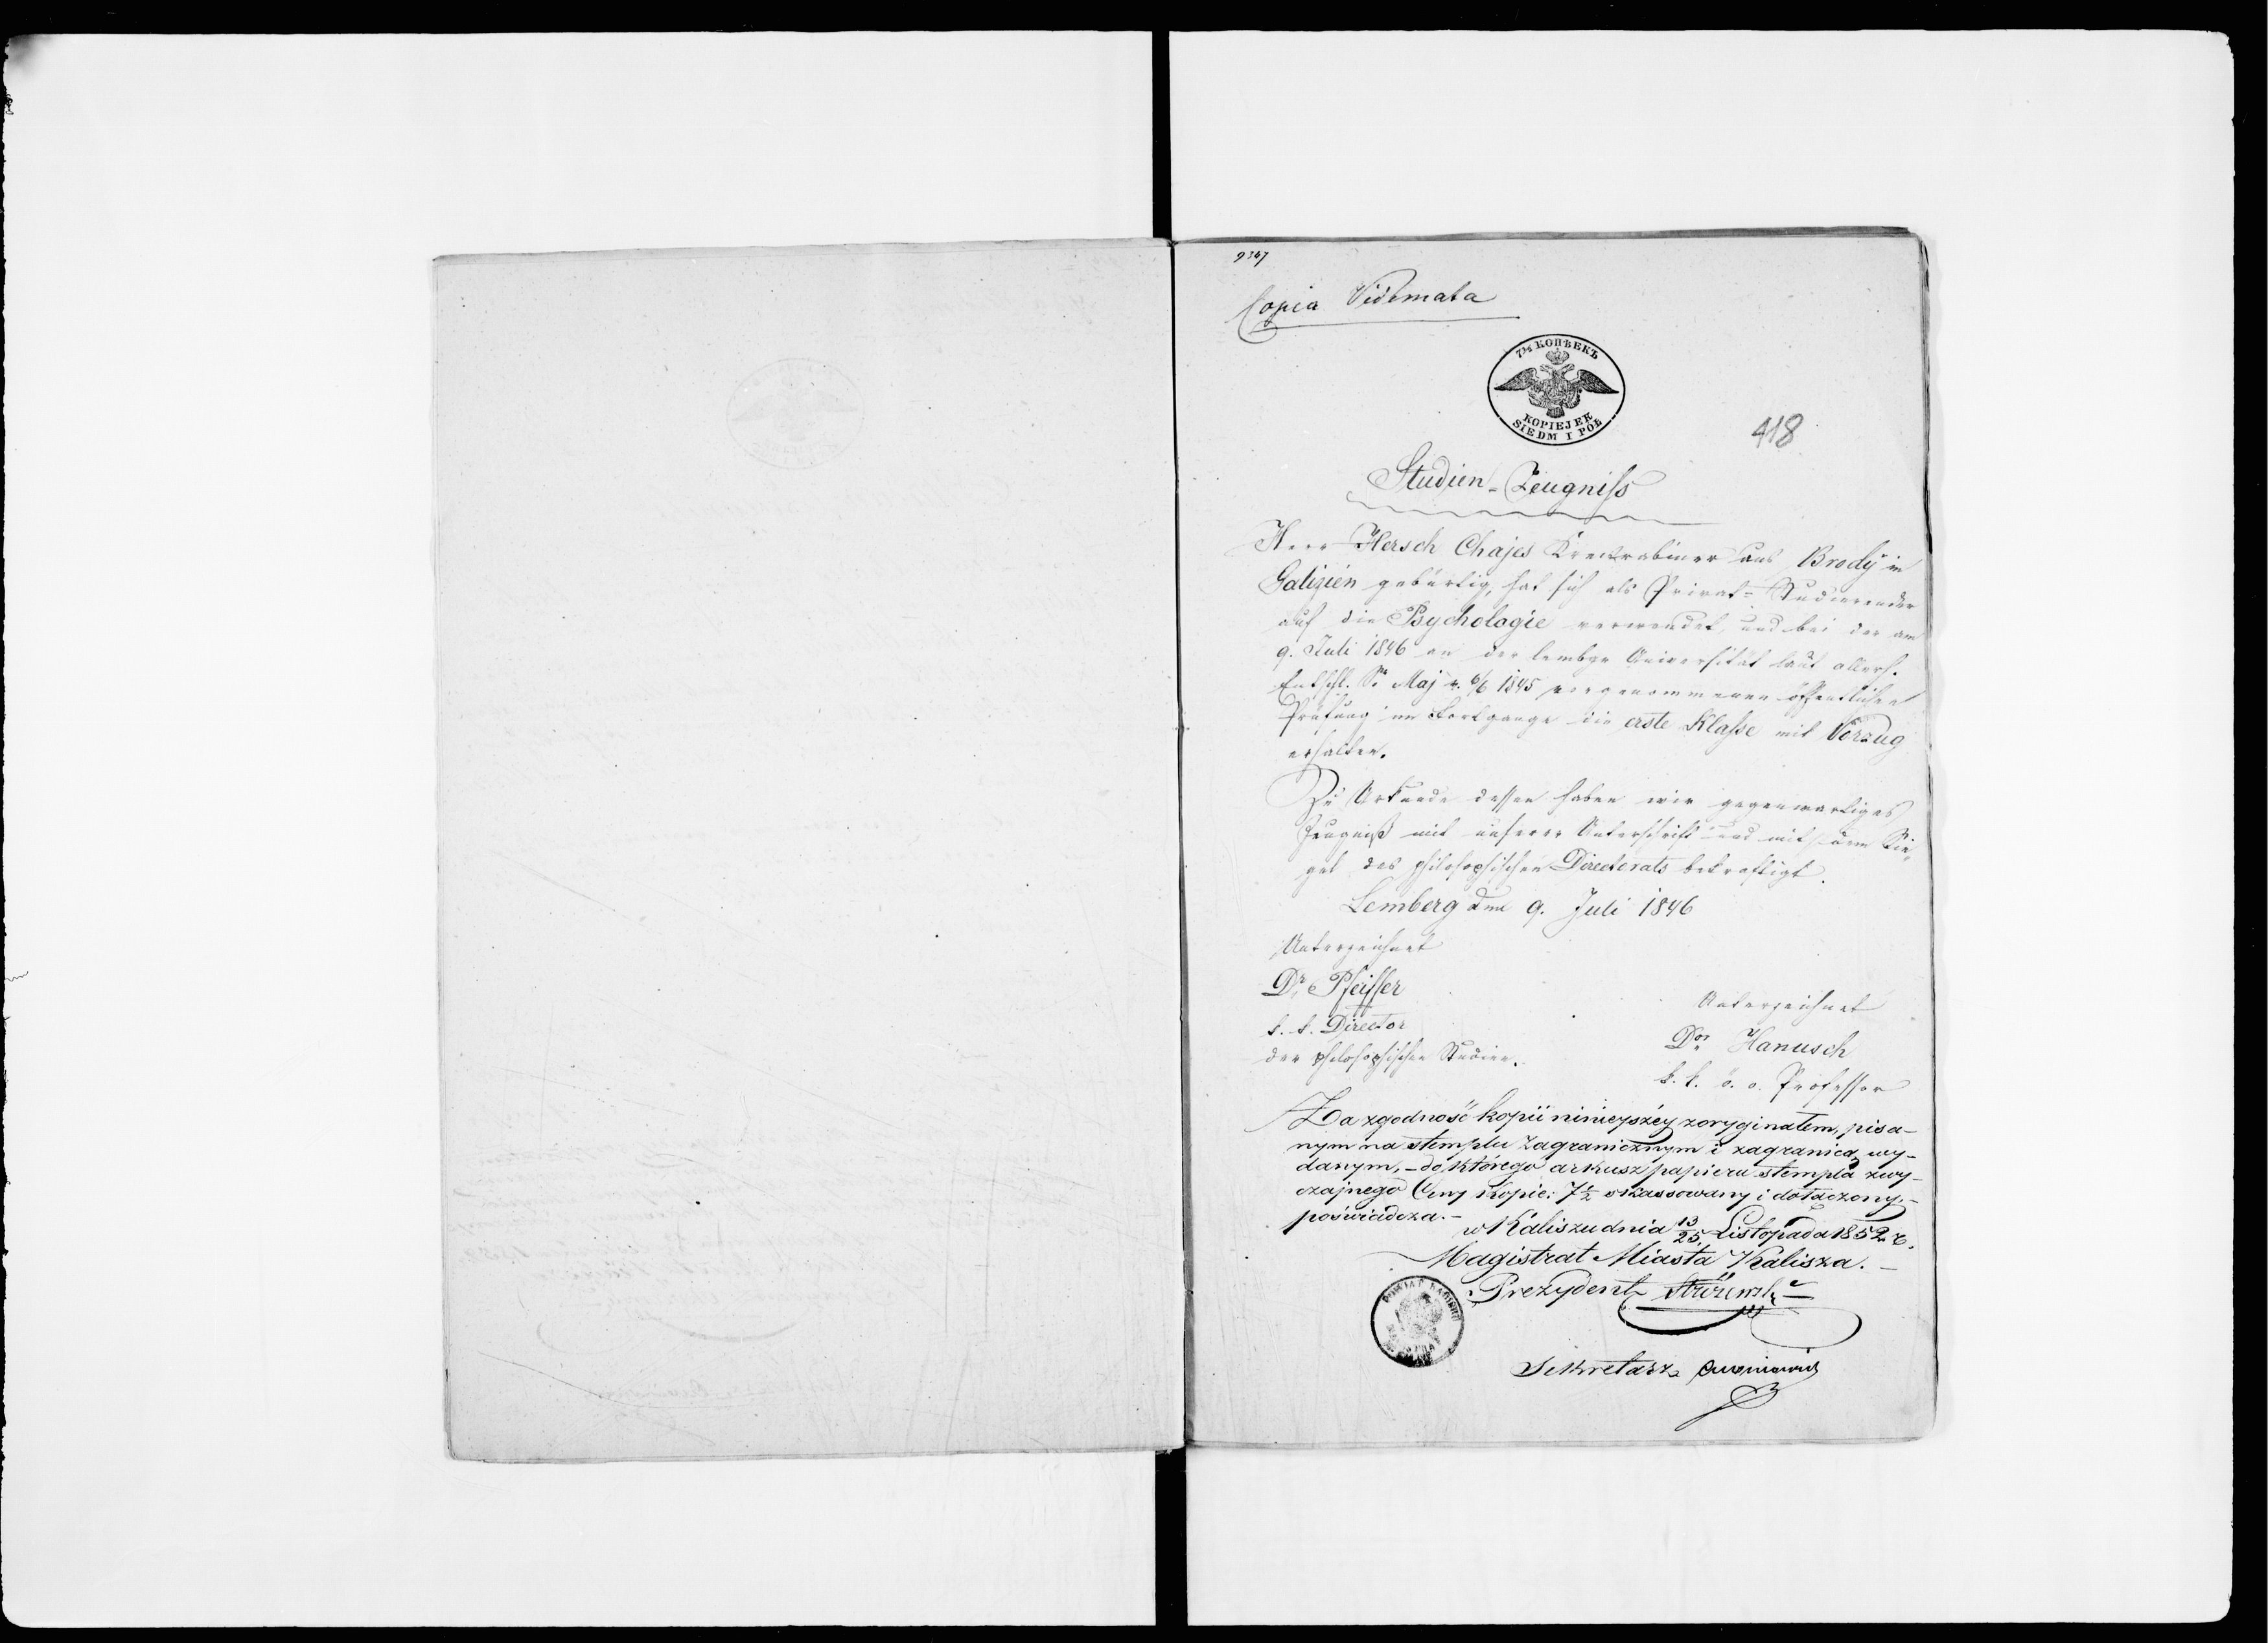 9347
Copia Vidimata
7½ КОПѢЕКЪ
KOPIEJEK
SIEDM I PÓŁ
418
Studien-Zeugniss
Herr Hersch Chajes Kreisrabiner aus Brody in
Galizien gebürtig, hat sich als Privat-Studierender
auf die Psychologie verwendet, und bei der am
9. Juli 1846 an der lembgr Universität laut allerh.
Entschl. Sr Maj v. 6/6 1845 vorgenommenen öffentlichen
Prüfung im Fortgange die erste Klasse mit Vorzug
erhalten.
Zu Urkunde dessen haben wir gegenwartiges
Zeugniß mit unserer Unterschrift und mit dem Sie-
gel des philosophischen Directorats bekraftigt.
Lemberg den 9. Juli 1846
Unterzeichnet
Dr Pfeiffer
k. k. Director
der philosophischen Studien.
Unterzeichnet
Dor Hanusch
k. k. ö. o. Professor
Za zgodność kopii niniejszéy z oryginałem, pisa-
nym na stemplu zagranicznym i zagranicą wy-
danym, - do którego arkusz papieru stempla zwy-
czajnego Ceny kopie: 7½ skassowany i dołączony, -
poświadcza. -
w Kaliszu dnia 13/25 Listopada 1852 r.
Magistrat Miasta Kalisza. -
Prezydent
Sekretarz